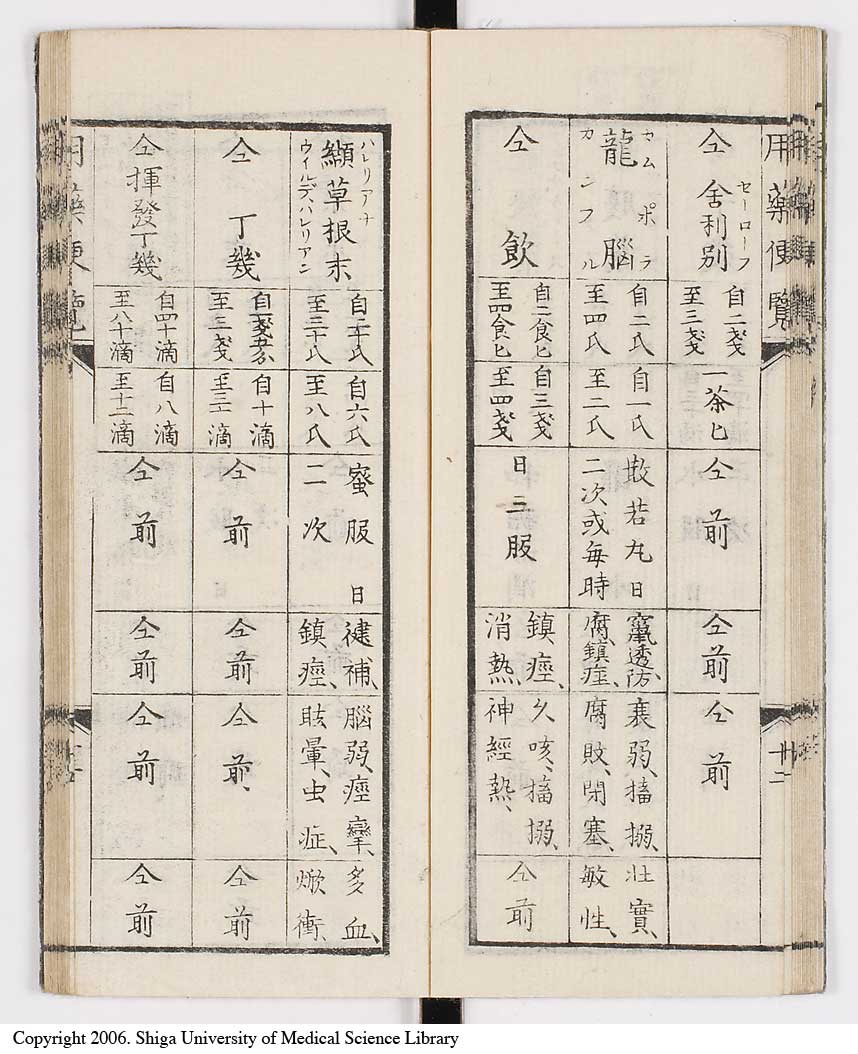 用藥便覽
廿二
仝舍利別
セーローフ
自二戔
至三戔
一茶匕
仝前
仝前
仝前
龍腦
セムポラ
カンフル
自二氏
至四氏
自一氏
至二氏
散若丸日
二次或每時
竄透、防
腐、鎮痙、
衰弱、搐搦、
腐敗、閉塞、
壯實、
敏性、
仝飲
自二食匕
至四食匕
自三戔
至四戔
日三服
鎮痙、
消熱、
久咳、搐搦、
神經熱、
仝前
纈草根末
ハレリアナ
ウイルデ、バレリアン
自二十氏
至三十氏
自六氏
至八氏
蜜服日
二次
健補、
鎮痙、
腦弱、痙攣、
眩暈、虫症、
多血、
焮衝、
仝丁幾
至三戔
自十滴
至三十滴
仝前
仝前
仝前、
仝前
仝揮發丁幾
自四十滴
至八十滴
自八滴
至十二滴
仝前
仝前
仝前
仝前
用藥便覽